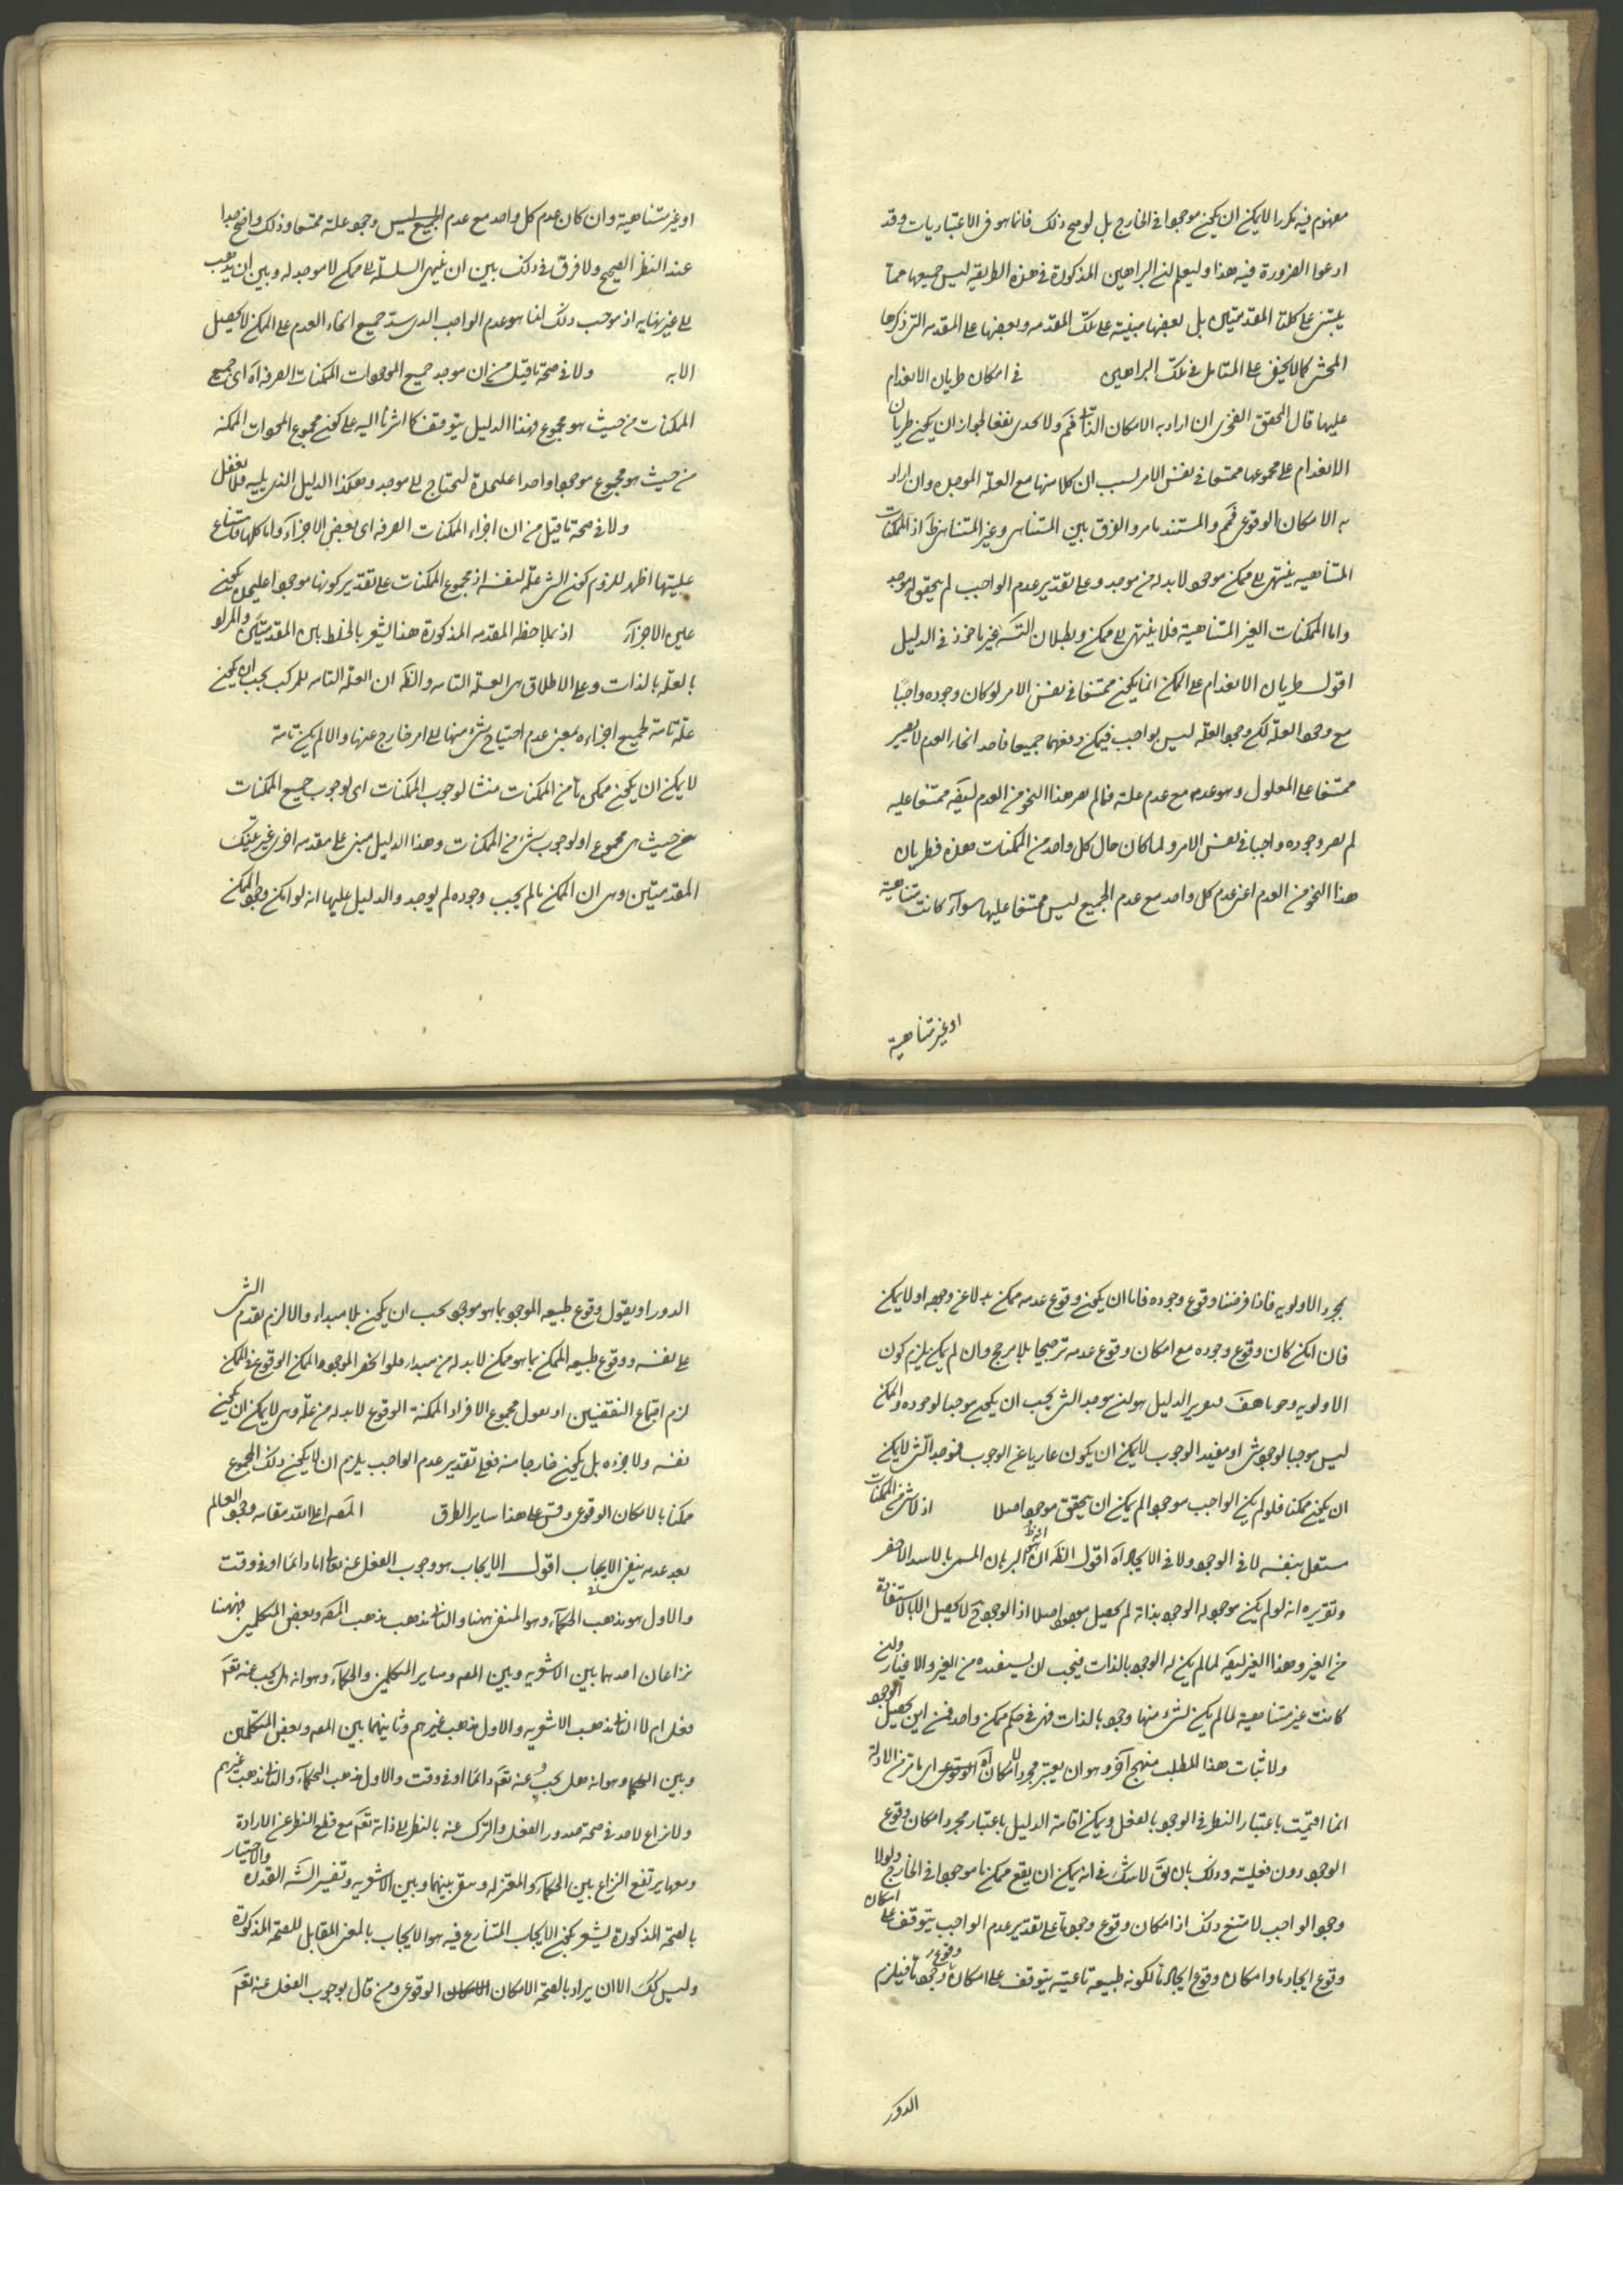 مفهوم فيه يكررا لا يمكن ان يكون موجودا فى الخارج بل لو صح ذلك فانما هو فى الاعتباريات وقد
ادعوا الضرورة فيه هذا وليعلم ان البراهين المذكورة فى هذه الطريقه ليس جميعها مما
يبتنى على كلتا المقدمتين بل بعضها مبنية على تلك المقدمه وبعضها على المقدمه التى ذكرها
المحشى كما لا يخفى على المتامل فى تلك البراهين فى امكان طريان الانعدام
عليها قال المحقق الفخرى ان اراد به الامكان الذاتى فمم ولا يجدى نفعا لجواز ان يكون طريان
الانعدام على مجموعها ممتنعا فى نفس الامر بسبب ان كلا منها مع العلة الموجبه وان اراد
به الامكان الوقوعى فمم والمستند ما مر والفرق بين المتناهى وغير المتناهى ظ اذ الممكنات
المتناهيه ينتهى الى ممكن موجود لابد له من موجد وعلى تقدير عدم الواجب لم يتحقق له موجد
واما الممكنات الغير المتناهية فلا ينتهى الى ممكن وبطلان التسلسل غير ماخوذ فى الدليل
اقول طريان الانعدام على الممكن انما يكون ممتنعا فى نفس الامر لو كان وجوده واجبا
مع وجود العلة لكن وجود العلة ليس بواجب فيمكن رفعهما جميعا فاحد انحاء العدم لا يصير
ممتنعا على المعلول وهو عدمه مع عدم علته فما لم يصر هذا النحو من العدم ايضا ممتنعا عليه
لم يصر وجوده واجبا فى نفس الامر ولما كان حال كل واحد من الممكنات هذه فطريان
هذا النحو من العدم اعنى عدم كل واحد مع عدم الجميع ليس ممتنعا عليها سوآء كانت متناهية
او غير متناهية
او غير متناهية وان كان عدم كل واحد مع عدم الجميع ليس وجود علته ممتنعا وذلك واضح جدا
عند النظر الصحيح ولا فرق فى ذلك بين ان ينتهى السلسلة الى ممكن لا موجد له وبين ان يذهب
الى غير نهايه اذ موجب ذلك انما هو عدم الواجب الذى سد جميع انحاء العدم على الممكن لا يحصل
الا به ولا فى صحة ما قيل من ان موجد جميع الموجودات الممكنات الصرفه اه اى جميع
الممكنات من حيث هو مجموع فهذا الدليل يتوقف كما اشرنا اليه على كون مجموع الموجودات الممكنه
من حيث هو مجموع موجودا واحدا عليحدة ليحتاج الى موجد وهكذا الدليل الذى يليه فلا تغفل
ولا فى صحة ما قيل من ان اجزاء الممكنات الصرفه اى بعض الاجزآء واما كلها فامتناع
عليتها اظهر للزوم كون الشئ علة لنفسه اذ مجموع الممكنات على تقدير كونها موجودا عليحدة يكون
عين الاجزآء اذ بملاحظه المقدمه المذكورة هذا يشعر بالخلط بين المقدمتين والمراد
بالعلة بالذات وعلى الاطلاق هى العلة التامه والظ ان العلة التامه للمركب يجب ان يكون
علة تامة لجميع اجزاءه بمعنى عدم احتياج شئ منها الى امر خارج عنها والا لم يكن تامة
لا يمكن ان يكون ممكن ما من الممكنات منشا لوجوب الممكنات اى لوجوب جميع الممكنات
من حيث هى مجموع او لوجوب شئ من الممكنات وهذا الدليل مبنى على مقدمه اخرى غير تينك
المقدمتين وهى ان الممكن ما لم يجب وجوده لم يوجد والدليل عليها انه لو امكن وجود الممكن
بمجرد الاولويه فاذا فرضنا وقوع وجوده فاما ان يكون وقوع عدمه ممكن بدلا عن وجوده او لا يمكن
فان امكن كان وقوع وجوده مع امكان وقوع عدمه ترجيحا بلا مرجح وان لم يمكن يلزم كون
الاولويه وجوبا هف تقرير الدليل هو ان موجد الشئ يجب ان يكون موجبا لوجوده والممكن
ليس موجبا لوجود شئ او مفيد الوجوب لا يمكن ان يكون عاريا عن الوجوب فموجد الشئ لا يمكن
ان يكون ممكنا فلو لم يكن الواجب موجودا لم يمكن ان يتحقق موجود اصلا اذ لا شئ من الممكنات
مستقل بنفسه لا فى الوجود ولا فى الايجاد اه اقول الظ ان هذا البرهان المسمى بالاسد الاخصر
وتقريره انه لو لم يكن موجود له الوجود بذاته لم يحصل موجود اصلا اذ الوجود ح لا يحصل الا بالاستفادة
من الغير وهذا الغير ايضا لما لم يكن له الوجود بالذات فيجب ان يستفيده من الغير والاغيار وان
كانت غير متناهية لما لم يكن لشئ منها وجود بالذات فهى فى حكم ممكن واحد فمن اين يحصل الوجود
ولاثبات هذا المطلب منهج آخر وهو ان يعتبر مجرد الامكان الوقوعى اه اى ما مر من الادلة
انما اقيمت باعتبار النظر فى الوجود بالفعل ويمكن اقامة الدليل باعتبار مجرد امكان وقوع
الوجود دون فعليته وذلك بان يق لا شك فى انه يمكن ان يقع ممكن ما موجودا فى الخارج ولولا
وجود الواجب لامتنع ذلك اذ امكان وقوع وجود ما على تقدير عدم الواجب يتوقف على امكان
وقوع ايجاد ما وامكان وقوع ايجاد ما لكونه طبيعه ناعتيه يتوقف على امكان وقوع وجود ما فيلزم
الدور
الدور او يقول وقوع طبيعه الموجود بما هو موجود يجب ان يكون بلا مبداء والا لزم تقدم الشئ
على نفسه ووقوع طبيعه الممكن بما هو ممكن لابد له من مبداء فلو انحصر الموجود الممكن الوقوع فى الممكن
لزم اجتماع النقيضين او يقول مجموع الافراد الممكنة الوقوع لابد له من علة وهى لا يمكن ان يكون
نفسه ولا جزءه بل يكون خارجا منه فعلى تقدير عدم الواجب يلزم ان لا يكون ذلك المجموع
ممكنا بالامكان الوقوعى وقس على هذا ساير الطرق المصه اعلى الله مقامه وجود العالم
بعد عدمه ينفى الايجاب اقول الايجاب هو وجوب الفعل عنه تعالى اما دائما او فى وقت
والاول هو مذهب الحكمآء وهو المنفى ههنا والثانى مذهب مذهب المصه وبعض المتكلمين وههنا
نزاعان احدهما بين الاشعريه وبين المصه وساير المتكلمين والحكمآء وهو انه هل يجب عنه تعم
فعل ام لا الثانى مذهب الاشعريه والاول مذهب غيرهم وثانيهما بين المصه وبعض المتكلمين
وبين الحكما وهو انه هل يجب عنه تعم دائما او فى وقت والاول مذهب الحكمآء والثانى مذهب غيرهم
ولا نزاع لاحد فى صحة صدور الفعل والترك عنه بالنظر الى ذاته تعم مع قطع النظر عن الارادة والاختيار
وبهما يرتفع النزاع بين الحكمآء والمعتزله وبقى بينهما وبين الاشعريه وتفسير الش القدرة
بالصحة المذكورة يشعر بكون الايجاب المتنازع فيه هو الايجاب بالمعنى المقابل للصحة المذكورة
وليس كك الا ان يراد بالصحة الامكان الامكان الوقوعى ومن قال بوجوب الفعل عنه تعم